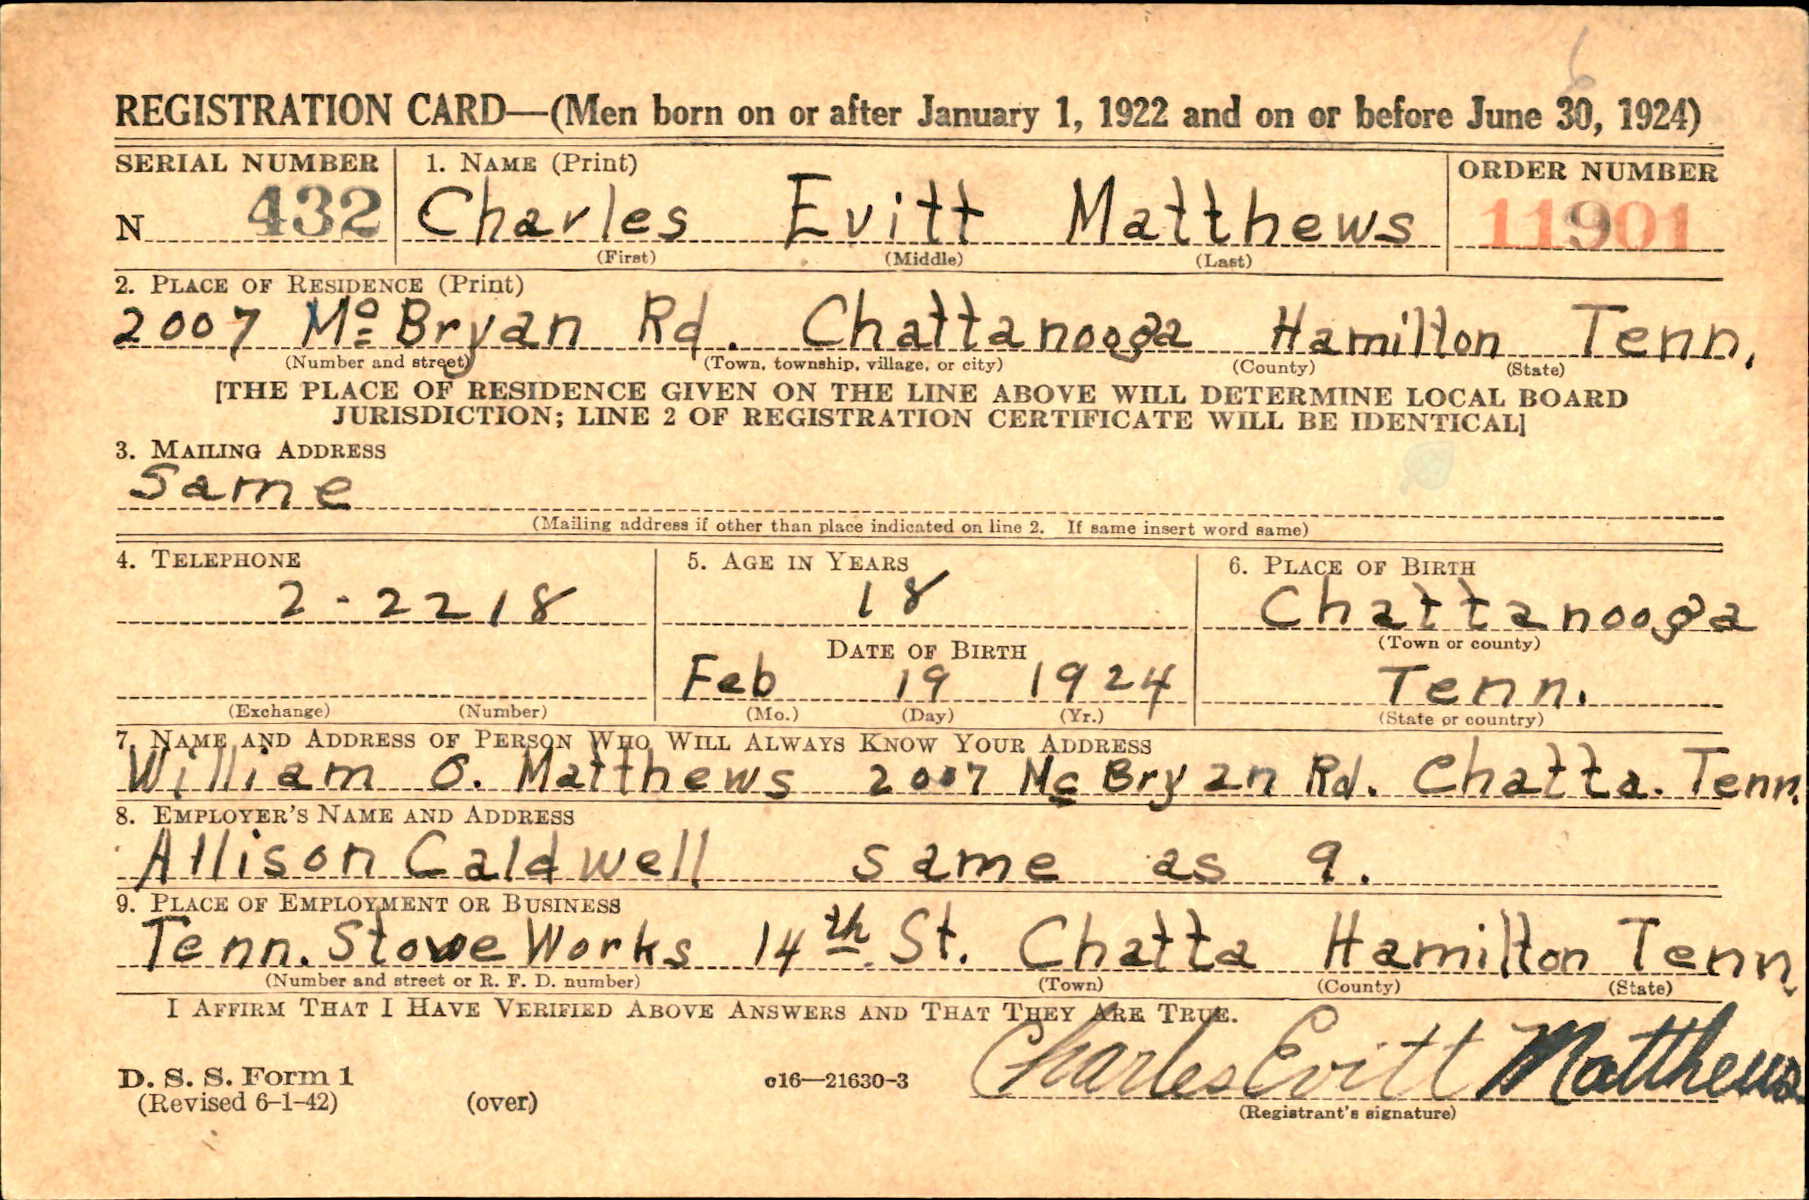 REGISTRATION CARD—(Men born on or after January 1, 1922 and on or before June 30, 1924)
SERIAL NUMBER 1. NAME (Print) ORDER NUMBER
N 432 Charles Evitt Matthews 11901
(First) (Middle) (Last)
2. PLACE OF RESIDENCE (Print)
2007 Mc Bryan Rd. Chattanooga Hamilton Tenn.
(Number and street) (Town, township, village, or city) (County) (State)
[THE PLACE OF RESIDENCE GIVEN ON THE LINE ABOVE WILL DETERMINE LOCAL BOARD
JURISDICTION; LINE 2 OF REGISTRATION CERTIFICATE WILL BE IDENTICAL]
3. MAILING ADDRESS
Same
(Mailing address if other than place indicated on line 2. If same insert word same)
4. TELEPHONE 5. AGE IN YEARS 6. PLACE OF BIRTH
2-2218 18 Chattanooga
(Town or county)
DATE OF BIRTH
Feb 19 1924 Tenn.
(Exchange) (Number) (Mo.) (Day) (Yr.) (State or country)
7. NAME AND ADDRESS OF PERSON WHO WILL ALWAYS KNOW YOUR ADDRESS
William O. Matthews 2007 Mc Bryan Rd. Chatta. Tenn.
8. EMPLOYER'S NAME AND ADDRESS
Allison Caldwell same as 9.
9. PLACE OF EMPLOYMENT OR BUSINESS
Tenn. Stove Works 14th St. Chatta Hamilton Tenn.
(Number and street or R. F. D. number) (Town) (County) (State)
I AFFIRM THAT I HAVE VERIFIED ABOVE ANSWERS AND THAT THEY ARE TRUE.
Charles Evitt Matthews
D. S. S. Form 1 c16—21630-3
(Revised 6-1-42) (over) (Registrant's signature)